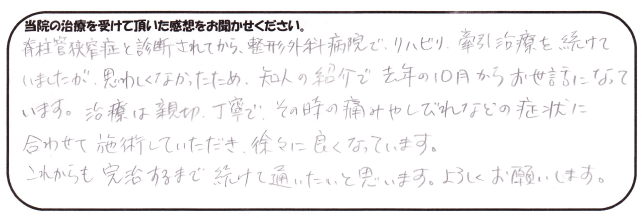 当院の治療を受けて頂いた感想をお聞かせください。
脊柱管狭窄症と診断されてから、整形外科病院で、リハビリ、牽引治療を続けて
いましたが、思わしくなかったため、知人の紹介で去年の10月からお世話になって
います。治療は親切、丁寧で、その時の痛みやしびれなどの症状に
合わせて施術していただき、徐々に良くなっています。
これからも完治するまで続けて通いたいと思います。よろしくお願いします。